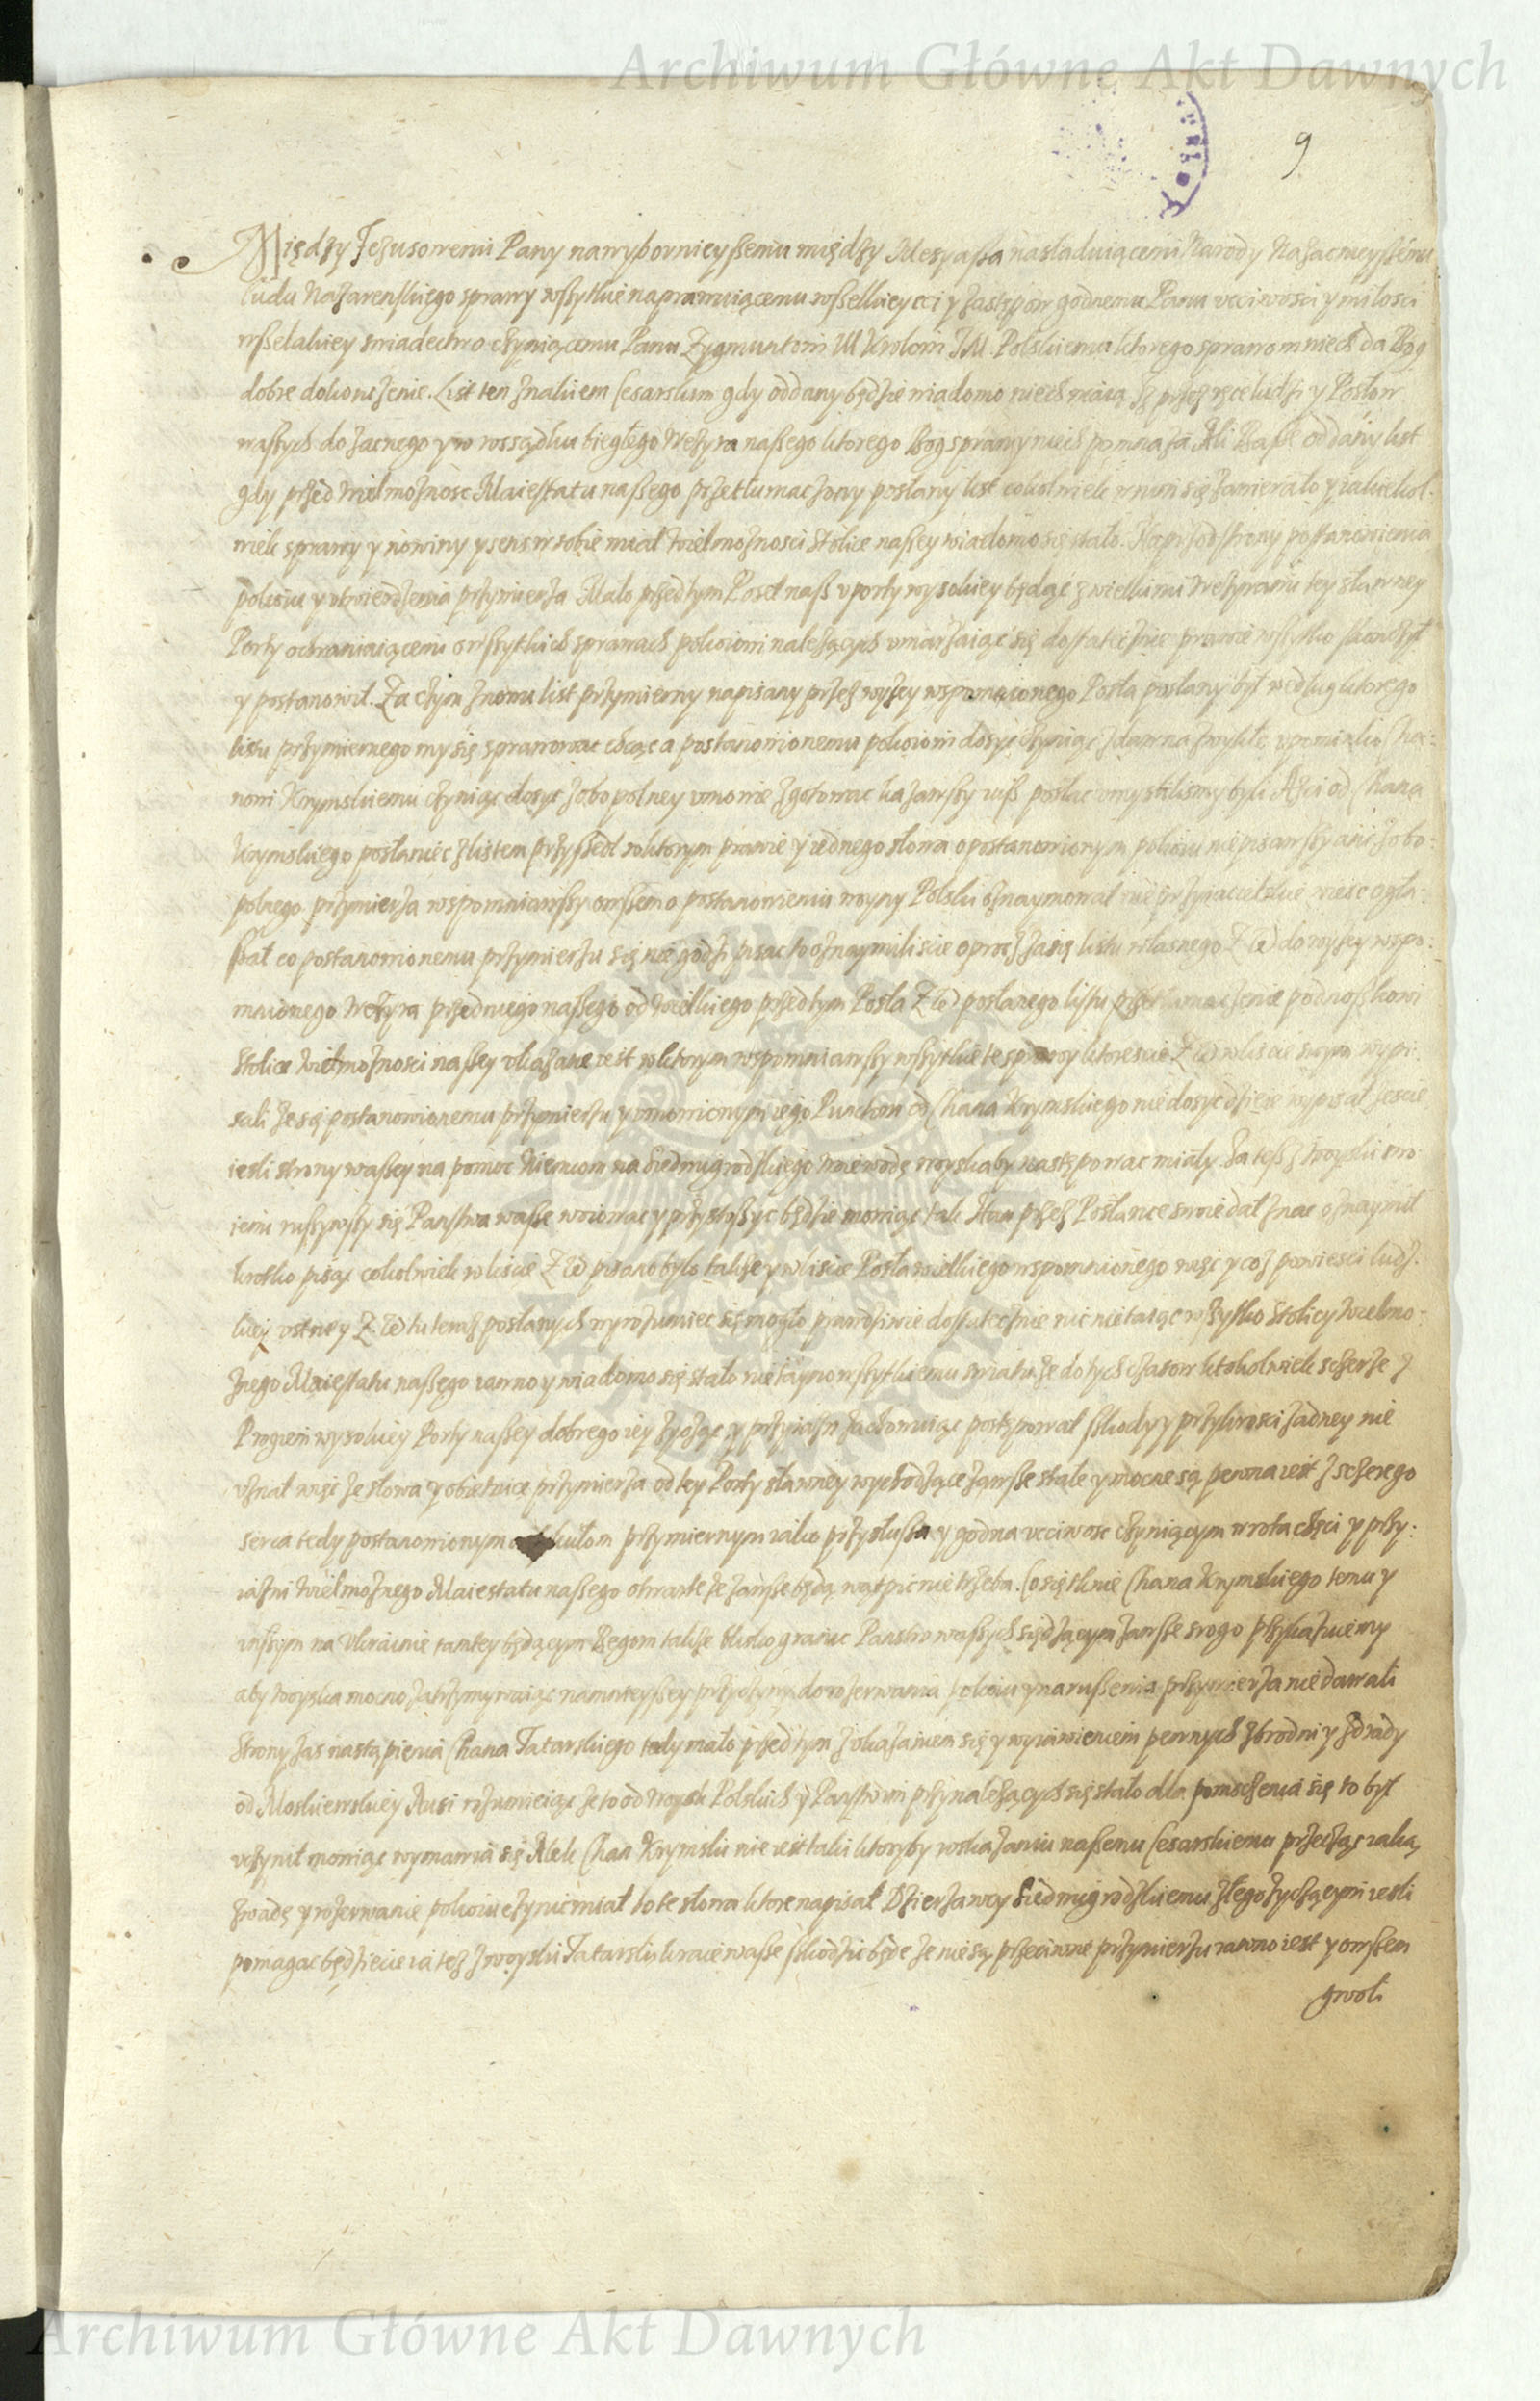 Archiwum Główne Akt Dawnych
9
Między Jezusowemi Pany nawybornieyszemu między Mesyasza nasladuiącemi Narody Nazacnieyszemu
Ludu Nazarenskiego sprawy wszytkie naprawuiącemu wszelkiey czci y zastępow godnemu Panu vczciwosci y miłosci
wszelakiey swiadectwo czyniącemu Panu Zygmuntowi III Krolowi JM. Polskiemu ktorego sprawom niech da Bog
dobre dokonczenie. List ten znakiem Cesarskim gdy oddany będzie wiadomo niech maią ze przez ręce ludzi y Posłow
waszych do zacnego y w rossądku biegłego Wezyra naszego ktorego Bog sprawy niech pomnaza Ali Basze oddany list
gdy przed Wielmoznosc Maiestatu naszego przetłumaczony posłany list cokolwiek w nim się zawierało y iakiekol:
wiek sprawy y nowiny y sens w sobie miał Wielmoznosci Stolice naszey wiadomo się stało. Naprzod strony postanowienia
pokoiu y utwierdzenia przymierza Mało przedtym Poseł nasz v porty wysokiey będąc z wielkimi Wezyrami tey sławney
Porty ochraniaiącemi o wszytkich sprawach pokoiowi nalezących vmawiaiąc się dostatecznie prawie wszytko skonczył
y postanowił. Za czym znowu list przymierny napisany przez wyzey wspomnionego Posła posłany był według ktorego
listu przymiernego my się sprawowac chcąc a postanowionemu pokoiowi dosyc czyniąc zdawna zwykłe vpominki Cha:
nowi Krymskiemu czyniąc dosyc zobopolney vmowie zgotowac kazawszy iusz posłac vmyslilismy byli Azci od Chana
Krymskiego posłaniec z listem przyszedł w ktorym prawie y iednego słowa o postanowionym pokoiu nie pisawszy ani zobo:
polnego przymierza wspomniawszy owszem o postanowieniu woyny Polski oznaymował nie przyiacielskie wiesc ogła:
szał co postanowionemu przymierzu się nie godzi pisac to oznaymiliscie oprocz zasię listu własnego do wyzey wspo:
mnionego Wezyra przedniego naszego od Wielkiego przedtym Posła posłanego listu przetłumaczenie podnoszkowi
Stolice Wielmoznosci naszey vkazane iest w ktorym wspomniawszy wszytkie te sprawy ktorescie w liscie swym wypi:
sali ze się postanowionemu przymierzu y vmowionym iego Punctom od Chana Krymskiego nie dosyc dzieie wypisał zescie
iesli strony waszey na pomoc Niemcom na Siedmigrodzkiego Woiewodę woyska by następowac miały Ia tesz z woyski swo:
iemi ruszywszy się Panstwa wasze woiowac y pustoszyc będzie mowiąc tak Han przez Posłance swoie dał znac oznaymił
krotko pisząc cokolwiek w liscie pisano było takze y w liscie Posła wielkiego wspomnionego więc y co z powiesci ludz:
kiey vstney tu teraz posłanych wyrozumiec się mogło prawdziwie dostatecznie nic nie taiąc wszytko Stolicy Wielmo:
znego Maiestatu naszego iawno y wiadomo się stało nie tayno wszytkiemu swiatu ze do tych czasow ktokolwiek szczerze z
Progiem wysokiey Porty naszey dobrego iey zycząc y przyiazn zachowuiąc postępował szkody y przykrosci zadney nie
vznał więc ze słowa y obietnice przymierza od tey Porty sławney wychodzące zawsze stałe y mocne są pewna iest z szczerego
serca tedy postanowionym przymiernym iako przysłusza y godna vczciwosc czyniącym wrota chęci y przy:
iazni Wielmoznego Maiestatu naszego otwarte ze zawsze będą wątpic nie trzeba. Co się tknie Chana Krymskiego temu y
inszym na Vkrainie tamtey będącym Begom takze blisko granic Panstw waszych siedzącym zawsze srogo przykazuiemy
aby woyska mocno zatrzymywaiąc namnieyszey przyczyny do rozerwania pokoiu y naruszenia przymierza nie dawali
Strony zas nastąpienia Chana Tatarskiego tedy mało przed tym z okazaniem się y wyiawieniem pewnych zbrodni y zdrady
od Moskiewskiey Rusi rozumieiąc ze to od woysk Polskich y Panstwom przynalezących się stało dla pomszczenia się to był
vczynił mowiąc wymawia się Alek Chan Krymski nie iest taki ktoryby roskazaniu naszemu Cesarskiemu przecząc iaką
zwadę y rozerwanie pokoiu czynic miał bo te słowa ktore napisał Dzierzawcy Siedmigrodzkiemu złego zyczącym iesli
pomagac będziecie ia tez z woyski Tatarski kraie wasze szkodzic będę ze nie są przeciwne przymierzu iawno iest y owszem
gwoli
Archiwum Główne Akt Dawnych